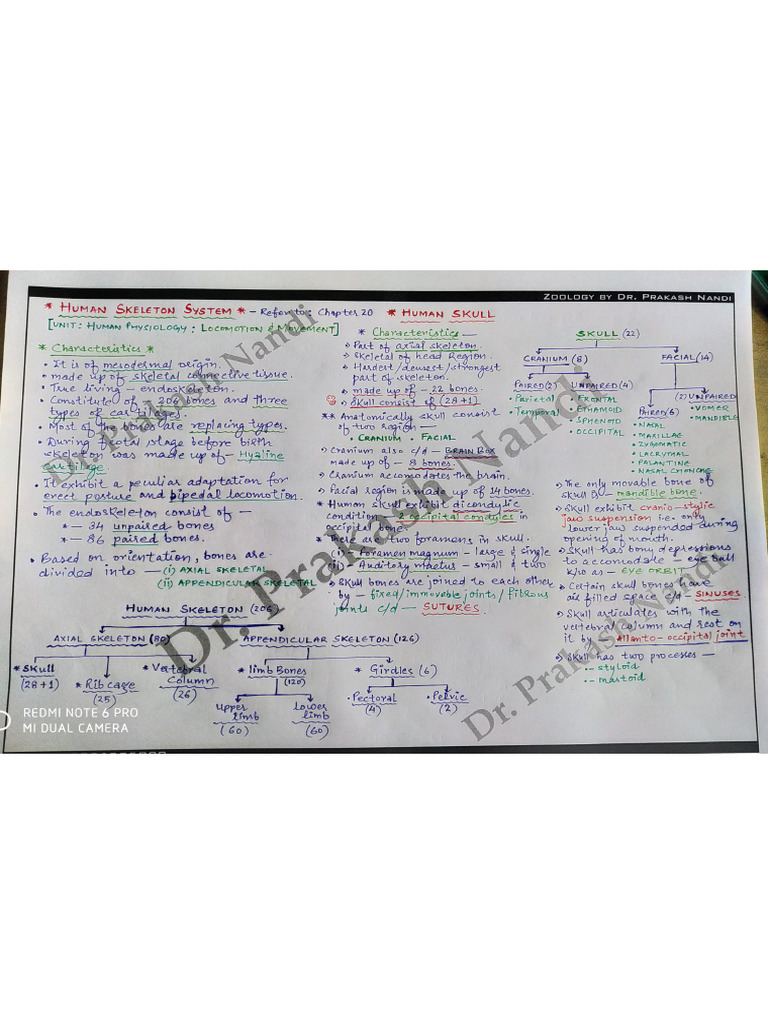 ZOOLOGY BY DR. PRAKASH NANDI
* HUMAN SKELETON SYSTEM * - Refer to Chapter 20
[UNIT: HUMAN PHYSIOLOGY : LOCOMOTION & MOVEMENT]
* Characteristics *
• It is of mesodermal origin.
• made up of skeletal connective tissue.
• True living - endoskeleton.
• Constitute of - 206 bones and three
types of cartilages.
• Most of the bones are replacing types.
• During foetal stage before birth
skeleton was made up of - Hyaline
cartilage.
• It exhibit a peculiar adaptation for
erect posture and bipedal locomotion.
• The endoskeleton consist of -
* - 34 unpaired bones
* - 86 paired bones.
• Based on orientation, bones are
divided into - (i) AXIAL SKELETAL
(ii) APPENDICULAR SKELETAL
HUMAN SKELETON (206)
AXIAL SKELETON (80)
APPENDICULAR SKELETON (126)
* Skull
(28+1)
* Rib cage
(25)
* Vertebral
Column
(26)
* limb Bones
(120)
* Girdles (6)
upper
limb
(60)
lower
limb
(60)
• Pectoral
(4)
• Pelvic
(2)
* HUMAN SKULL
* Characteristics -
Part of axial skeleton.
Skeletal of head Region.
Hardest/densest/strongest
part of skeleton.
made up of - 22 bones.
Skull consist of (28+1)
** Anatomically skull consist
of two region -
• CRANIUM • FACIAL
Cranium also c/d - BRAIN BOX
made up of - 8 bones.
Cranium accomodates the brain.
Facial region is made up of 14 bones.
* Human skull exhibit dicondylic
condition - 2 occipital condyles in
occipital bone.
* There are two foramens in skull.
(i) Foramen magnum - large & single
(ii) Auditory meatus - small & two
Skull bones are joined to each other
by - fixed/immovable joints/fibrous
joints c/d - SUTURES.
SKULL (22)
CRANIUM (8)
FACIAL (14)
PAIRED (2)
• Parietal
• Temporal
UNPAIRED (4)
• FRONTAL
• ETHAMOID
• SPHENOID
• OCCIPITAL
PAIRED (6)
• NASAL
• MAXILLAE
• ZYGOMATIC
• LACRYMAL
• PALANTINE
• NASAL CHONCHE
(2) UNPAIRED
• VOMER
• MANDIBLE
The only movable bone of
skull is - mandible bone.
Skull exhibit cranio-stylic
jaw suspension i.e. only
lower jaw suspended during
opening of mouth.
Skull has bony depressions
to accomodate - eye ball
k/so as - EYE ORBIT
Certain skull bones have
air filled space c/d - SINUSES
Skull articulates with the
vertebral column and rest on
it by Atlanto-occipital joint
Skull has two processes -
- styloid
- mastoid
Dr. Prakash Nandi
Dr. Prakash Nandi
Dr. Prakash Nandi
REDMI NOTE 6 PRO
MI DUAL CAMERA